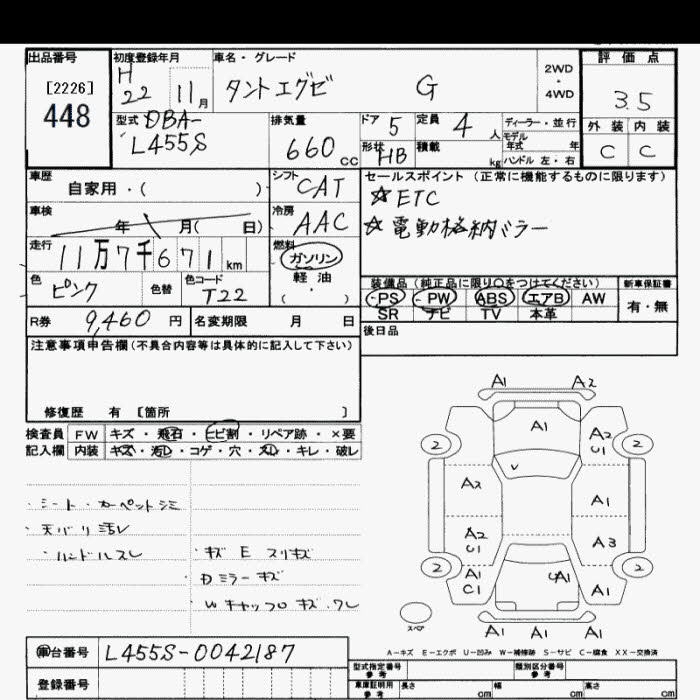 出品番号
[2226]
448
初度登録年月
H 22 11月
車名・グレード
タントエグゼ G
2WD・4WD
評価点
3.5
外装 内装
C C
型式 DBA-
L455S
排気量
660cc
ドア 5
定員 4人
ディーラー・並行
モデル年式 年
形状 HB
積載 kg
ハンドル 左・右
車歴
自家用・( )
シフト CAT
セールスポイント (正常に機能するものに限ります)
☆ETC
☆電動格納ミラー
車検
年 月( 日)
冷房 AAC
走行
11万7千671km
燃料
ガソリン
軽油
(・)
色 ピンク
色替
色コード T22
装備品(純正品に限り○をつけてください)
新車保証書
PS PW ABS エアB AW
SR ナビ TV 本革
有・無
R券 9,460円
名変期限 月 日
後日品
注意事項申告欄(不具合内容等は具体的に記入して下さい)
修復歴 有 [箇所 ]
検査員 FW キズ・飛石・ヒビ割・リペア跡・×要
記入欄 内装 キズ・汚レ・コゲ・穴・スレ・キレ・破レ
・シート・カーペットシミ
・天バリ汚レ
・ハンドルスレ
・キズ E スリキズ
・Dミラーキズ
・Wキャップロキズ・ワレ
A1 A2
A1
A2
U1
2 2
A2
A1
A2
U1
A3
2 2
A1
C1
UA1
A1
スペア
A1 A1 A1
A-キズ E-エクボ U-凹み W-補修跡 S-サビ C-腐食 XX-交換済
車台番号 L455S-0042187
登録番号
型式指定番号
参考
類別区分番号
参考
車庫証明用
参考
長さ cm 幅 cm 高さ cm